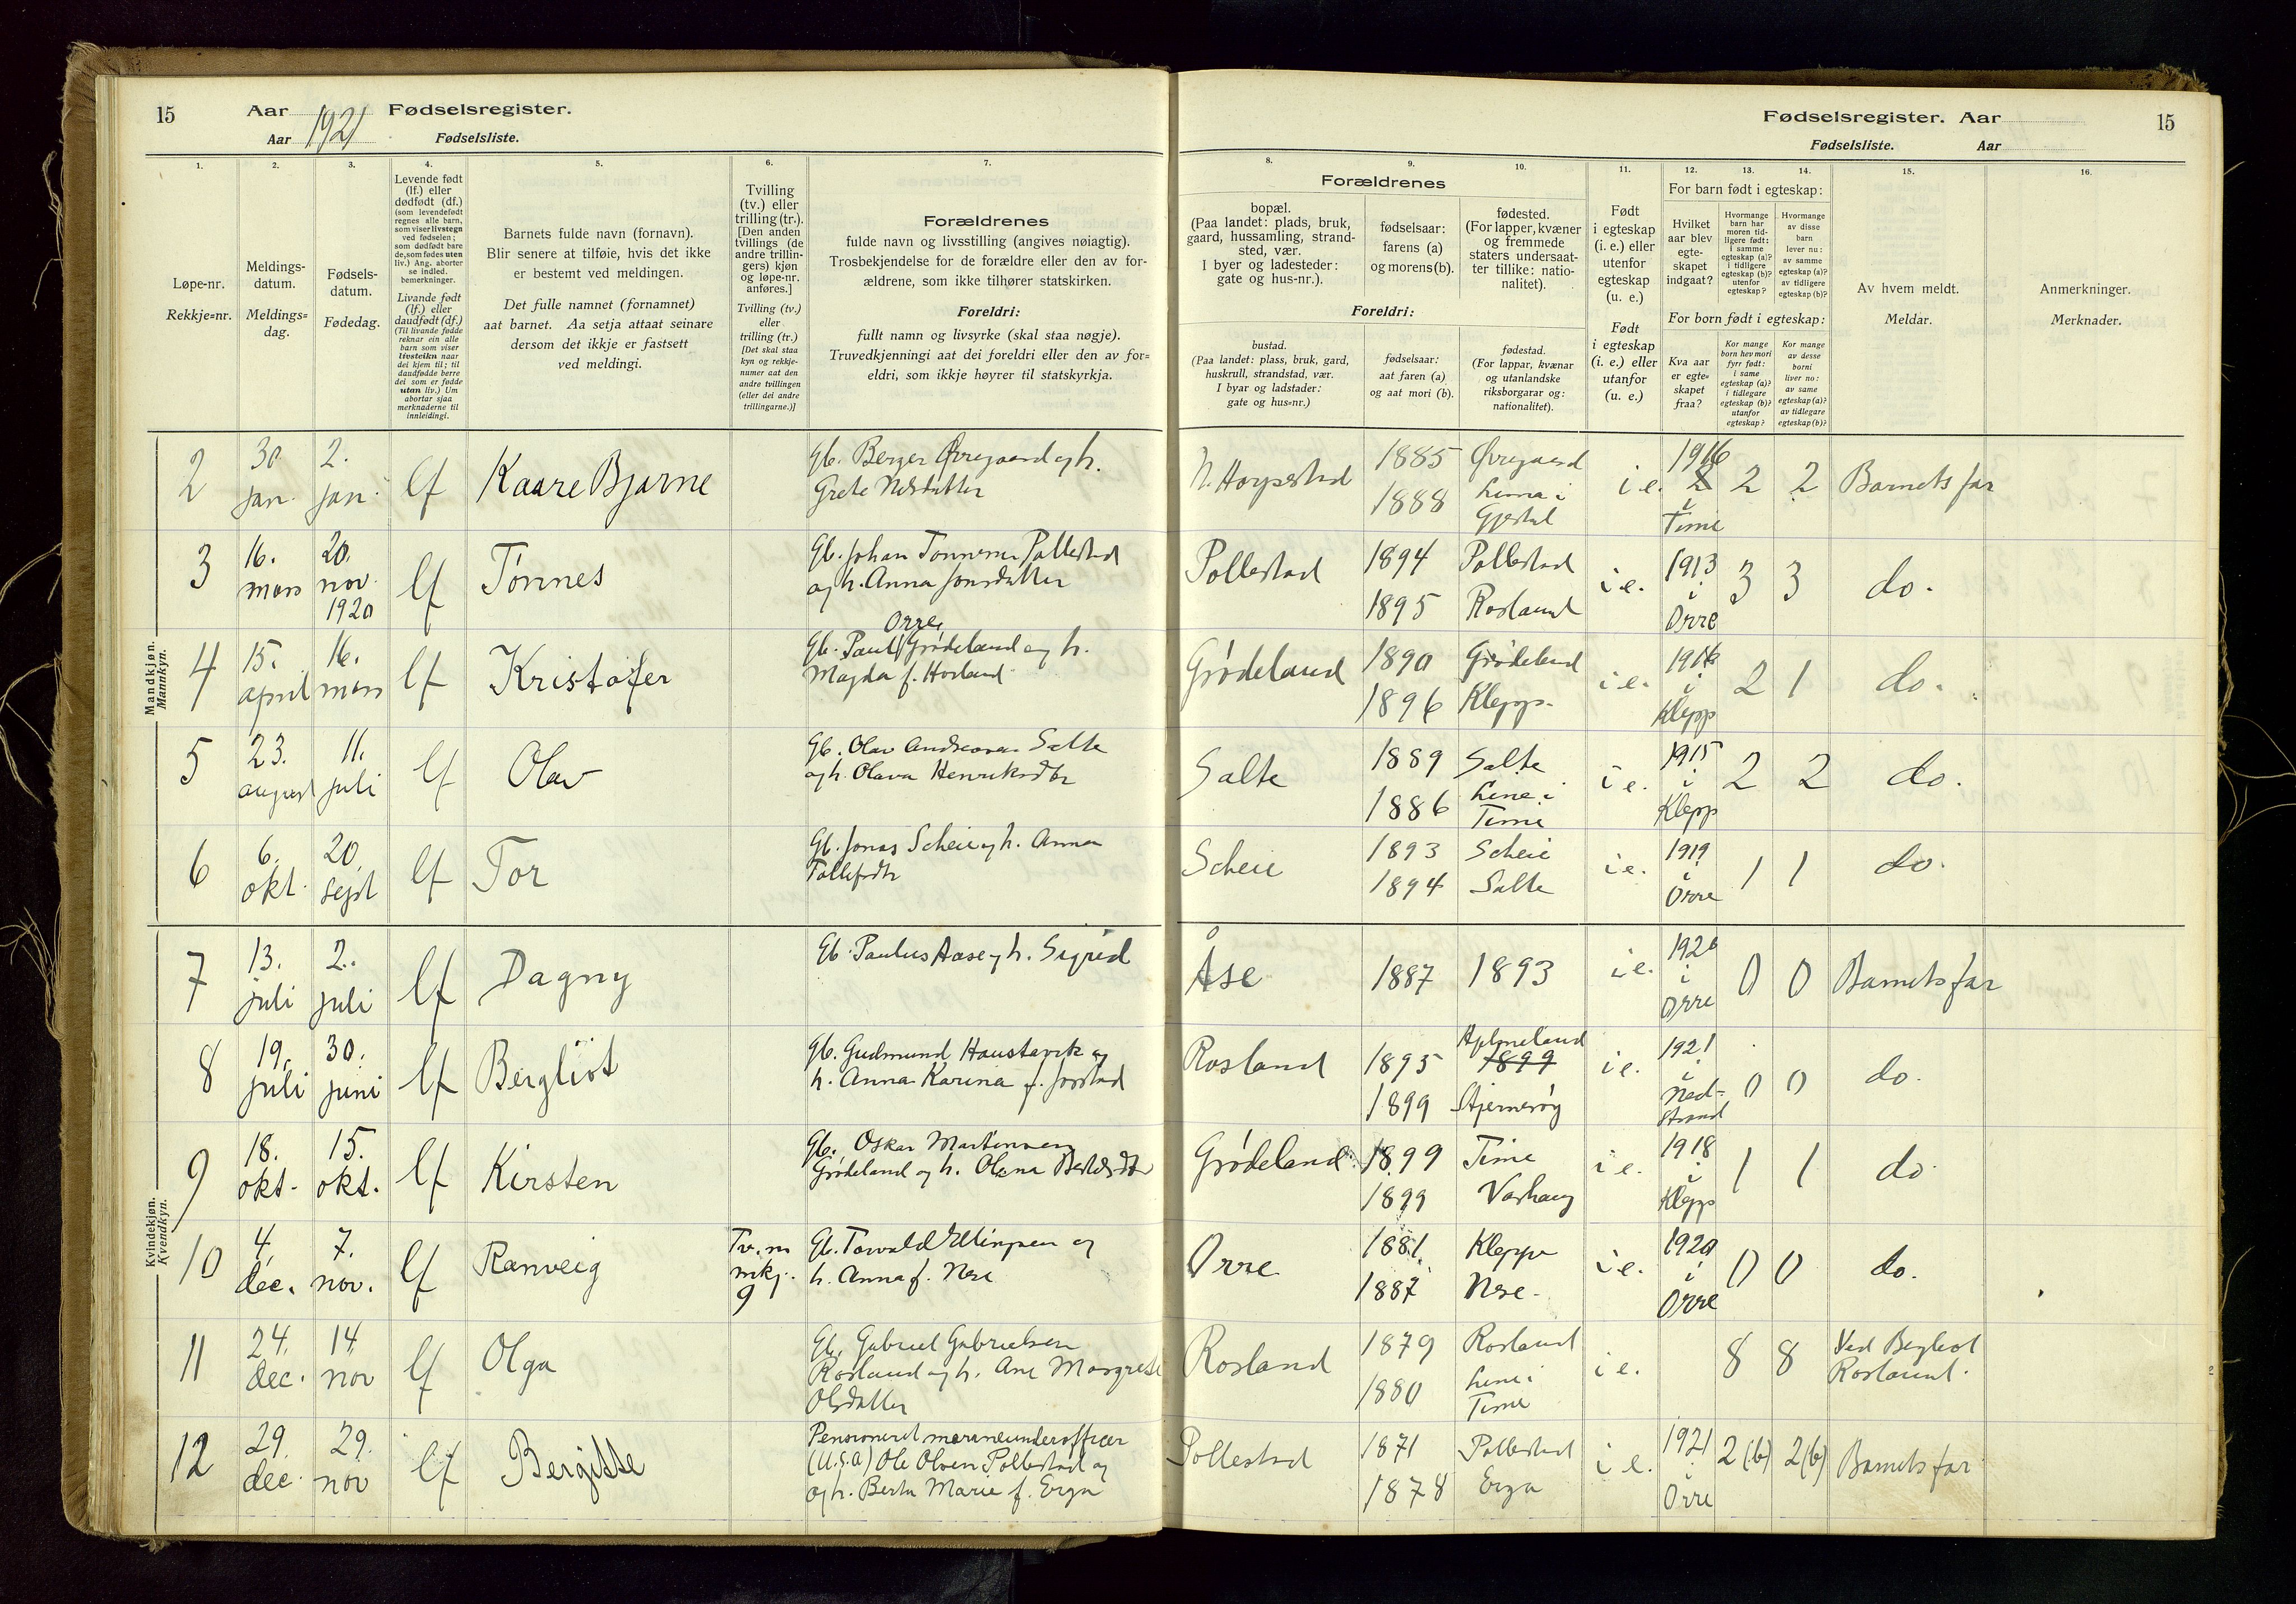 15
Aar 1921 Fødselsregister.
Aar Fødselsliste.
1.
2.
3.
4.
5.
6.
7.
Løpe-nr.
Rekkje=nr.
Meldings-
datum.
Meldings=
dag.
Fødsels-
datum.
Fødedag.
Levende født
(lf.) eller
dødfødt (df.)
(som levendefødt
regnes alle barn,
som viser livstegn
ved fødselen;
som dødfødt bare
de, som fødes uten
liv.) Ang. aborter
se indled.
bemerkninger.
Livande født
(lf.) eller
daudfødt (df.)
(Til livande fødde
reknar ein alle
barn som viser
livsteikn naar
dei kjem til; til
daudfødde berre
dei som er fødde
utan liv.) Um
abortar sjaa
merknaderne til
innleidingi.
Barnets fulde navn (fornavn).
Blir senere at tilføie, hvis det ikke
er bestemt ved meldingen.
Det fulle namnet (fornamnet)
aat barnet. Aa setja attaat seinare
dersom det ikkje er fastsett
ved meldingi.
Tvilling
(tv.) eller
trilling (tr.).
[Den anden
tvillings (de
andre trillin-
gers) kjøn
og løpe-nr.
anføres.]
Tvilling (tv.)
eller
trilling (tr.)
[Det skal staa
kyn og rekkje-
numer aat den
andre tvillingen
(eller dei andre
trillingarne.)]
Forældrenes
fulde navn og livsstilling (angives nøiagtig).
Trosbekjendelse for de forældre eller den av for-
ældrene, som ikke tilhører statskirken.
Foreldri:
fullt namn og livsyrke (skal staa nøgje).
Truvedkjenningi aat dei foreldri eller den av for=
eldri, som ikkje høyrer til statskyrkja.
Fødselsregister. Aar
15
Fødselsliste. Aar
8.
9.
10.
11.
12.
13.
14.
15.
16.
Forældrenes
bopæl.
(Paa landet: plads, bruk,
gaard, hussamling, strand-
sted, vær.
I byer og ladesteder:
gate og hus-nr.).
fødselsaar:
farens (a)
og morens (b).
fødested.
(For lapper, kvæner
og fremmede
staters undersaat-
ter tillike: natio-
nalitet).
Foreldri:
bustad.
(Paa landet: plass, bruk, gard,
huskrull, strandstad, vær.
I byar og ladstader:
gate og hus=nr.)
fødselsaar:
aat faren (a)
og aat mori (b).
fødestad.
(For lappar, kvænar
og utanlandske
riksborgarar og:
nationalitet).
Født
i egteskap
(i. e.) eller
utenfor
egteskap
(u. e.)
Født
i egteskap
(i. e.) eller
utanfor
(u. e.)
For barn født i egteskap:
Hvilket
aar blev
egte-
skapet
indgaat?
Hvormange
barn har
moren tid-
ligere født:
i samme
egteskap (a)?
i tidligere
egteskap (b)?
utenfor
egteskap?
Hvormange
av disse
barn
lever nu:
av samme
egteskap (a)?
av tidligere
egteskap (b)?
For born født i egteskap:
Kva aar
er egte=
skapet
fraa?
Kor mange
born hev mori
fyrr født:
i same
egteskap (a)?
i tidlegare
egteskap (b)?
utanfor
egteskap?
Kor mange
av desse
borni
liver no:
av same
egteskap (a)?
av tidlegare
egteskap (b)?
Av hvem meldt.
Meldar.
Anmerkninger.
Merknader.
Mandkjøn.
Mannkyn.
2 30. jan. 2. jan. lf Kaare Bjarne
Gb. Berger Øvregaard og h.
Grete Nilsdatter
1885 Øvregaard
1888 Lima i Gjestal
i e. 1916 i Time 2 2 Barnets far
3 16. mars 20. nov. 1920 lf Tønnes
Gb. Johan Tønnesen Pollestad
og h. Anna Jonsdatter
Pollestad 1894 Pollestad
1895 Rosland
i e. 1913 i Orre 3 3 do.
4 15. april 16. mars lf Kristofer
Orre,
Gb. Paul Grødeland og h.
Magda f. Horland
Grødeland 1890 Grødeland
1896 Klepp.
i e. i Klepp 2 1 do.
5 23. august 11. juli lf Olav
Gb. Olav Andreassen Salte
og h. Olava Henriksdtr
Salte 1889 Salte
1886 Line i Time
i e. 1915 i Klepp 2 2 do.
6 6. okt. 20. sept lf Tor
Gb. Jonas Scheie og h. Anna
Tollefsdtr
Scheie 1893 Scheie
1894 Salte
i e. 1919 i Orre 1 1 do.
Kvindekjøn.
Kvendkyn.
7 13. juli 2. juli lf Dagny
Gb. Paulus Aase og h. Sigrid
Åse 1887 1893
i e. 1920 i Orre 0 0 Barnets far
8 19. juli 30. juni lf Bergliot
Gb. Gudmund Haustavik og
h. Anna Karina f. Jorstad
Rosland 1895 1899
1899 Stjernerøy
i e. 1921 i Ned-
strand 0 0 do.
9 18. okt. 15. okt. lf Kirsten
Gb. Oskar Martinsen
Grødeland og h. Olena
Grødeland 1899 Time
1899 Varhaug
i e. 1918 i Klepp 1 1 do.
10 4. dec. 7. nov. lf Ranveig
Tv. m mkj. 9
Gb. Torvald Ellingsen og
h. Anna f. Nese
Orre 1881 Klepp
1887 Nese.
i e. 1920 i Orre 0 0 do.
11 24. dec. 14. nov lf Olga
Gb. Gabriel Gabrielsen
Rosland og h. Ane Margrete
Olsdatter
Rosland 1879 Rosland
1880 Line i Time
i e. 8 8 Ved Bergliot
Rosland.
12 29. dec. 29. nov lf Bergitte
Pensioneret marineunderofficer
(U.S.A) Ole Olsen Pollestad og
og h. Berta Marie f. Erga
Pollestad 1871 Pollestad
1878 Erga
i e. 1921 i Orre 2(b) 2(b) Barnets far